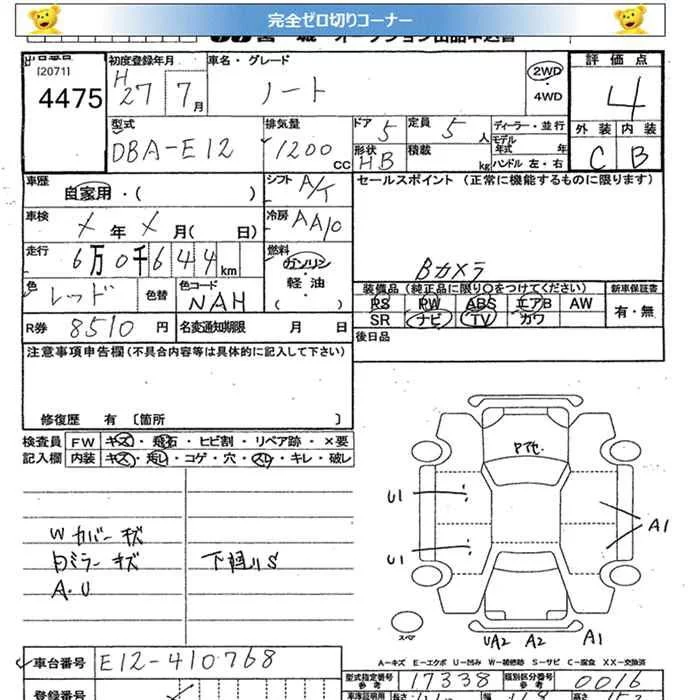 完全ゼロ切りコーナー
出品番号 初度登録年月 車名・グレード 評価点
[2071] 4475 H27 7月 ノート 2WD・4WD 4
型式 排気量 ドア 5 定員 5人 ディーラー・並行 外装 内装
DBA-E12 1200CC 形状 HB 積載 kg モデル年式 年式 ハンドル 左・右 C B
車歴 自家用・( ) シフト A/T セールスポイント (正常に機能するものに限ります)
車検 年 月( 日) 冷房 AAC
走行 6万0千644km 燃料 ガソリン・軽油( ) Bカメラ
色 レッド 色替 色コード NAH 装備品(純正品に限り○をつけてください) 新車保証書
PS PW ABS エアB AW 有・無
R券 8510円 名変通知期限 月 日 SR ナビ TV カワ
注意事項申告欄(不具合内容等は具体的に記入して下さい) 後日品
修復歴 有 〔箇所 〕
検査員 FW キズ・飛石・ヒビ割・リペア跡・×要
記入欄 内装 キズ・汚れ・コゲ・穴・スレ・キレ・破レ
Wカバーキズ
下廻りS
A.U
U1 U1 A1
スペア UA2 A2 A1
A-キズ E-エクボ U-凹み W-補修跡 S-サビ C-腐食 XX-交換済
車台番号 E12-410768
型式指定番号 参考 17338 類別区分番号 参考 0016
登録番号